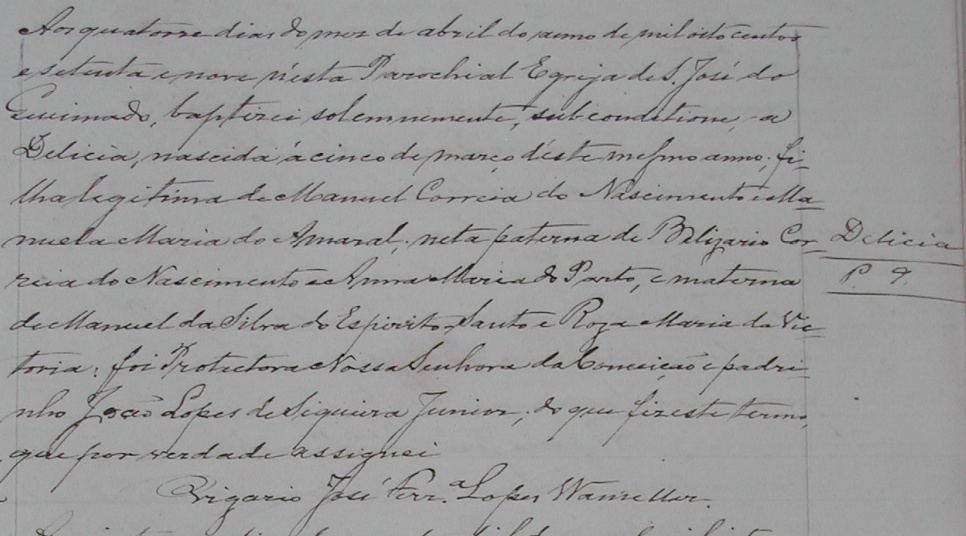 Aos quatorze dias do mez de abril do anno de mil oito centos
e setenta e nove n'ésta Parochial Egreja de S. José do
Queimado, baptizei solemnemente, sub conditione, a
Delicia, nascida á cinco de março d'éste mesmo anno; fi-
lha legitima de Manuel Correia do Nascimento e Ma-
nuela Maria do Amaral; neta paterna de Belizario Cor-
reia do Nascimento e Anna Maria do Parto, e materna
de Manuel da Silva do Espirito-Santo e Roza Maria da Vic-
toria: foi Protectora Nossa Senhora da Conceição e padri-
nho João Lopes de Siqueira Junior; do que fiz este termo,
que por verdade assignei
Vigario José Ferr.ª Lopes
Delicia
P. 9.